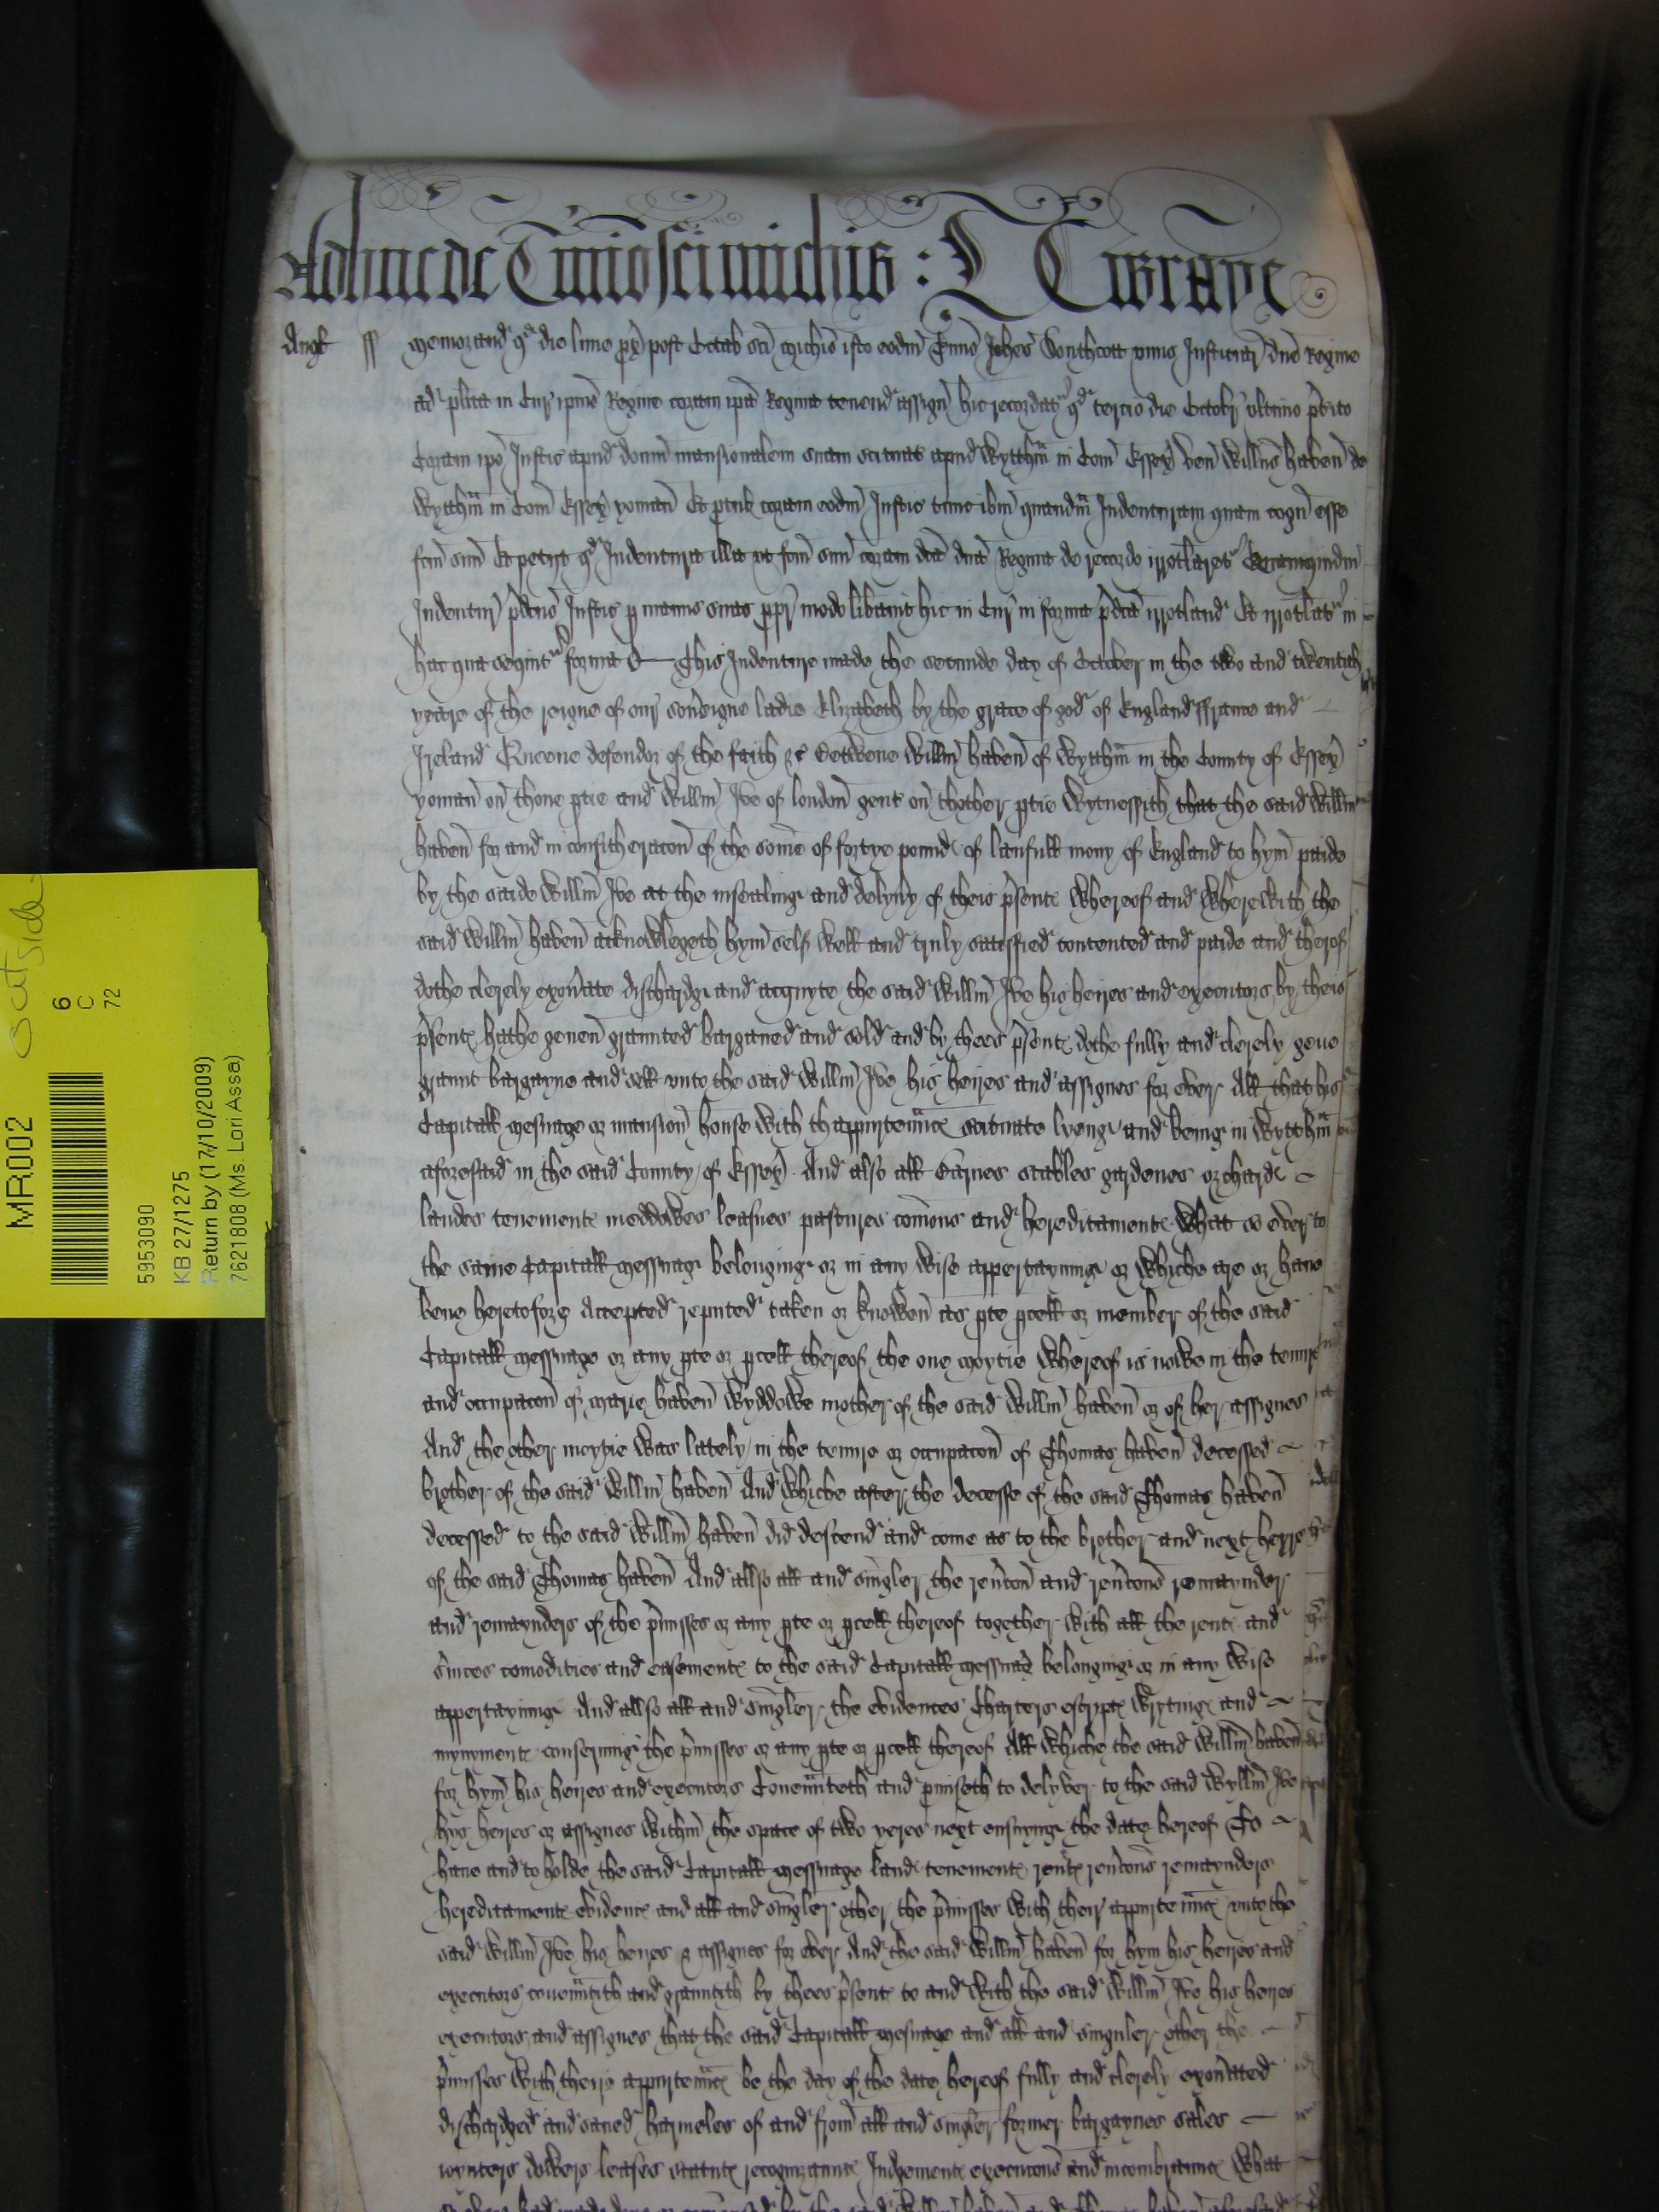 Adhuc de Tmio sci Michis : Wraye
Angl ss Memorand qd die lune px post Octab sci Michis isto eodm Tmio Johes Southcott unus Justiciar dne Regine
ad plita in Cur ipius Regine coram ipa Regina tenend assign hic recordat qd tercio die Octobr ultimo pterito
Coram ipo Justic apud domu mansionalem suam scituat apud Wythm in Com Essex ven Willus haven de
Wythm in Com Essex yoman Et ptulit coram eodm Justic tunc ibm quandm Indenturam quam cogn esse
fcm suu Et petiit qd Indentura illa ut fcm suu coram dca dna Regina de recordo irrotlaret
Indentur pdcus Justic p manus suas ppr modo libavit hic in Cur in forma pdca irrotland Et irrotlat in
hac que sequit forma This Indenture made the secunde day of October in the two and twentith
yeare of the reigne of our soveigne ladie Elizabeth by the grace of god of England ffraunce and
Ireland Queene defendor of the faith &c Betwene Willm haven of Wythm in the County of Essex
yoman on thone ptie and Willm Ive of london gent on thother ptie Wytnessith that the said Willm
haven for and in consitheracon of the some of fortye pounds of laufull mony of England to hym paide
by the saide Willm Ive at the insealinge and delyvy of theis psents Whereof and Wherewith the
said Willm haven acknowlegeth hym self well and truly satisfied contented and paide and therof
dothe clerely exonate discharge and acquyte the said Willm Ive his heires and executors by theis
psents hathe geven graunted bargened and sold and by thees psents dothe fully and clerely geve
graunt bargayne and sell unto the said Willm Ive his heires and assignes for ever All that his
Capitall Mesuage or mansion house with thappurtenncs scituate lyenge and being in Wythm
aforesaid in the said County of Essex And also all Barnes stables gardenes orchards
landes tenements meddowes leasues pastures comons and hereditaments What so ever to
the same Capitall Messuage belonginge or in any Wise appertayninge or Whiche are or have
bene heretofore Accepted reputed taken or knowen as pte pcell or member of the said
Capitall Messuage or any pte or pcell thereof the one Moytie Whereof is nowe in the tenure
and occupacon of Marie haven Wyddowe mother of the said Willm haven or of her assignes
And the other moytie was lately in the tenure or occupacon of Thomas haven decessed
brother of the said Willm haven And Whiche after the decesse of the said Thomas haven
decessed to the said Willm haven did descend and come as to the brother and next heyre
of the said Thomas haven And allso all and singler the revcon and revcons remaynder
and remaynders of the pmisses or any pte or pcell thereof together with all the rents and
svices comodities and easements to the said Capitall Messuage belonginge or in any Wise
appertayninge And allso all and singler the evidences Charters escripts Wrytings and
mynyments conserning the pmisses or any pte or pcell thereof All Whiche the said Willm haven
for hym his heires and executors Covennteth and pmiseth to delyver to the said Wyllm Ive
hys heires or assignes within the space of two yeres next ensuynge the date hereof To
have and to holde the said Capitall Messuage lands tenements rents revcons remaynders
hereditaments evidencs and all and singler other the pmisses with their appurtenncs unto the
said Willm Ive his heires & assignes for ever And the said Willm haven for hym his heires and
executors covenntith and grauntith by thees psents to and with the said Willm Ive his heires
executors and assignes that the said Capitall Mesuage and all and singuler other the
pmisses With theire appurtenncs be the day of the date hereof fully and clerely exonated
discharged and saved harmeles of and from all and singler former bargaynes sales
joynters dowers leases statuts recognizauncs Judgements execucons and incombrauncs What
outside
MR002
6
C
72
5953090
KB 27/1275
Return by (17/10/2009)
7621808 (Ms. Lori Assa)